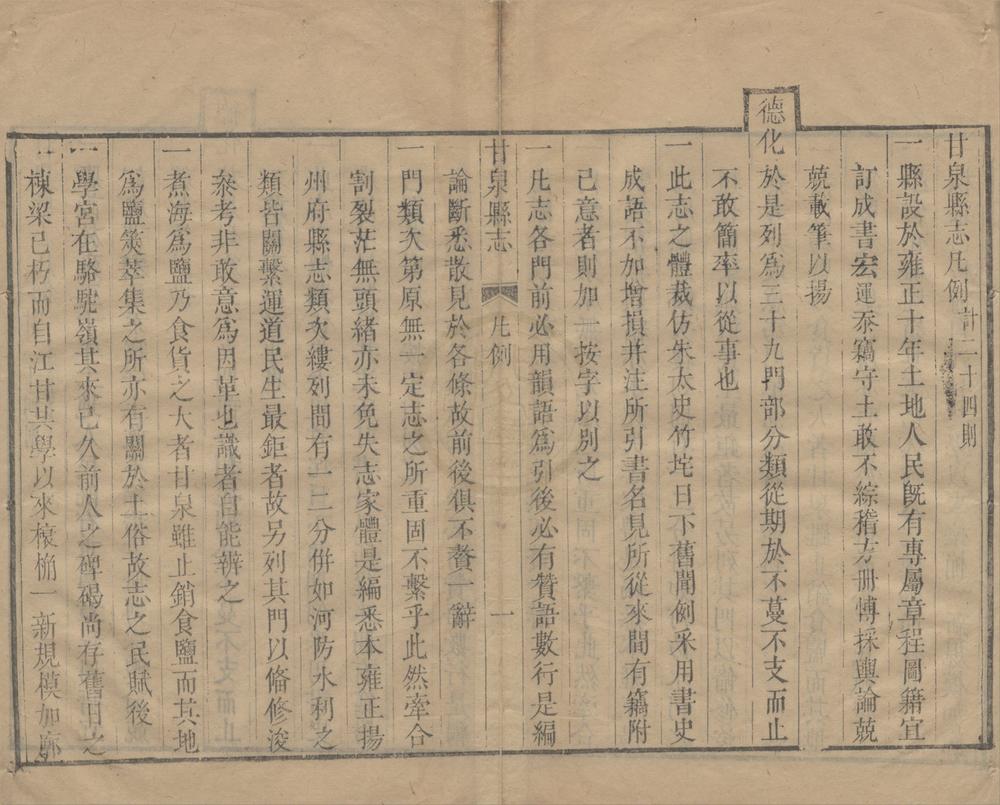 甘泉縣志凡例計二十四則
一縣設於雍正十年土地人民既有專屬章程圖籍宜
訂成書宏運忝竊守土敢不綜稽方冊博採輿論兢
兢載筆以揚
德化於是列爲三十九門部分類從期於不蔓不支而止
不敢簡率以從事也
一此志之體裁仿朱太史竹垞日下舊聞例采用書史
成語不加增損并注所引書名見所從來間有竊附
己意者則加一按字以別之
一凡志各門前必用韻語爲引後必有贊語數行是編
甘泉縣志
凡例
一
論斷悉散見於各條故前後俱不贅一辭
一門類次第原無一定志之所重固不繫乎此然牽合
割裂茫無頭緒亦未免失志家體是編悉本雍正揚
州府縣志類次縷列間有一二分併如河防水利之
類皆關繫運道民生最鉅者故另列其門以俻修浚
叅考非敢意爲因革也識者自能辨之
一煮海爲鹽乃食貨之大者甘泉雖止銷食鹽而其地
爲鹽筴萃集之所亦有關於土俗故志之民賦後
一學宮在駱駝嶺其來已久前人之碑碣尚存舊日之
棟梁已朽而自江甘共學以來榱桷一新規模加廓